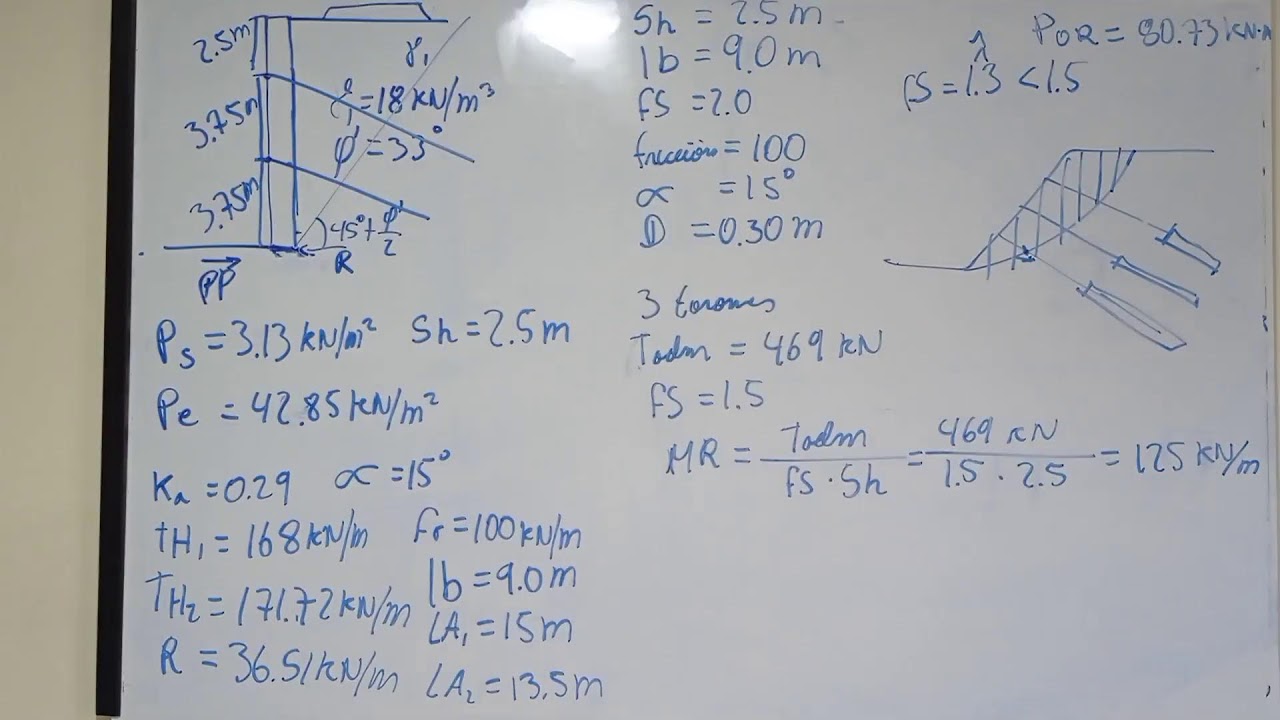 2.5m
3.75m
3.75m
γ₁
γ₁ = 18 kN/m³
φ' = 33°
45° + φ'/2
R
PP
Ps = 3.13 kN/m² Sh = 2.5m
Pe = 42.85 kN/m²
Ka = 0.29 α = 15°
TH₁ = 168 kN/m Fr = 100 kN/m
TH₂ = 171.72 kN/m lb = 9.0m
R = 36.51 kN/m LA₁ = 15m
LA₂ = 13.5m
Sh = 2.5m
lb = 9.0m
FS = 2.0
fricción = 100
α = 15°
D = 0.30m
3 torones
Tadm = 469 kN
FS = 1.5
MR = Tadm / FS · Sh = 469 kN / 1.5 · 2.5 = 125 kN/m
POR = 80.73 kN·m
FS = 1.3 < 1.5